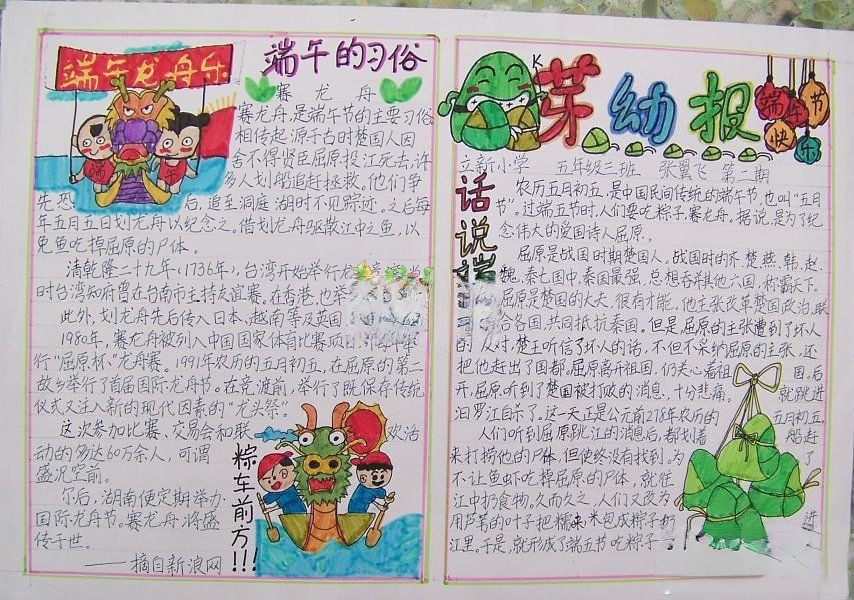 端午龙舟乐
端
午
端午的习俗
赛龙舟
赛龙舟,是端午节的主要习俗
相传起源于古时楚国人因
舍不得贤臣屈原投江死去,许
多人划船追赶拯救。他们争
先恐后,追至洞庭湖时不见踪迹。之后每
年五月五日划龙舟以纪念之。借划龙舟驱散江中之鱼,以
免鱼吃掉屈原的尸体。
清乾隆二十九年(1736年),台湾开始举行龙
时台湾知府曾在台南市主持友谊赛。在香港,也举
此外,划龙舟先后传入日本、越南等及英国
1980年,赛龙舟被列入中国国家体育比赛项
行“屈原杯”龙舟赛。1991年农历的五月初五,在屈原的第二
故乡举行了首届国际龙舟节。在竞渡前,举行了既保存传统
仪式又注入新的现代因素的“龙头祭。
这次参加比赛、交易会和联欢活
动的多达60万余人,可谓
盛况空前。
尔后,湖南便定期举办
国际龙舟节。赛龙舟将盛
传于世。
——摘自新浪网
粽车前方!!!
K
芽幼报
端午节
快乐
立新小学 五年级三班 张翼飞 第二期
话说端
农历五月初五,是中国民间传统的端午节,也叫“五月
节”。过端五节时,人们要吃粽子,赛龙舟。据说,是为了纪
念伟大的爱国诗人屈原。
屈原是战国时期楚国人。战国时的齐、楚、燕、韩、赵、
魏、秦七国中,秦国最强,总想吞并其他六国,称霸天下。
屈原是楚国的大夫,很有才能。他主张改革楚国政治,联
合各国,共同抵抗秦国。但是,屈原的主张遭到了坏人
的反对,楚王听信了坏人的话,不但不采纳屈原的主张,还
把他赶出了国都。屈原离开祖国,仍关心着祖国。后
来,屈原听到了楚国被打败的消息,十分悲痛,就跳进
汨罗江自杀了。这一天正是公元前278年农历的五月初五。
人们听到屈原跳江的消息后,都划着船赶了
来打捞他的尸体,但使终没有找到。为了
不让鱼虾吃掉屈原的尸体,就往
江中扔食物。久而久之,人们又改为
用芦苇的叶子把糯米包成粽子扔进
江里。于是,就形成了端五节吃粽子